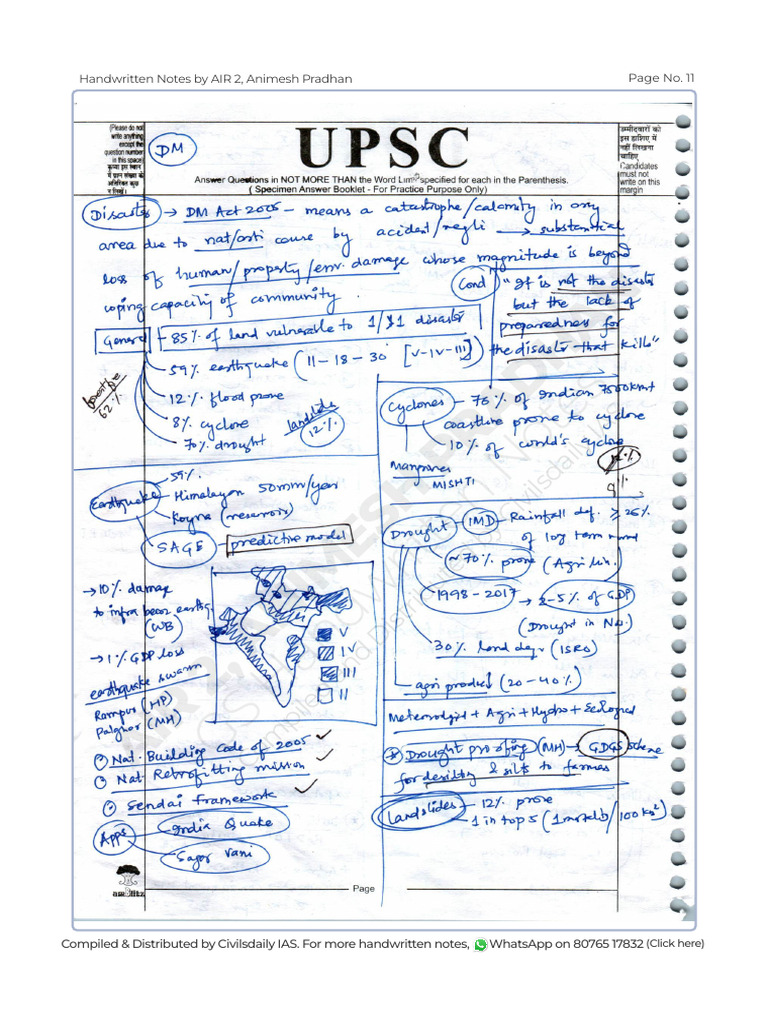 Handwritten Notes by AIR 2, Animesh Pradhan
Page No. 11
(Please do not
write anything
except the
question number
in this space)
कृपया इस स्थान
में प्रश्न संख्या के
अतिरिक्त कुछ
न लिखें।
DM
UPSC
Answer Questions in NOT MORE THAN the Word Limit specified for each in the Parenthesis.
( Specimen Answer Booklet - For Practice Purpose Only)
उम्मीदवारों को
इस हाशिए में
नहीं लिखना
चाहिए
Candidates
must not
write on this
margin
Disaster → DM Act 2005 - means a catastrophe/calamity in any
area due to nat/arti cause by accident/negli → substantial
loss of human/property/env. damage whose magnitude is beyond
coping capacity of community.
Cond "It is not the disaster
but the lack of
preparedness for
the disaster that kills"
General - 85% of land vulnerable to 1/>1 disaster
59% earthquake (11-18-30 [V-IV-III])
12% flood prone
8% cyclone
70% drought
landslide
12%
62%
Cyclones - 76% of Indian 7500kmt
coastline prone to cyclone
10% of world's cyclone
12%
9%
Mangroves
MISHTI
Earthquake 59%
- Himalayan 50mm/year
Koyna (reservoir)
SAGE - predictive model
→ 10% damage
to infra becoz earthq.
(WB)
→ 1% GDP loss
earthquake swarm
Rampur (HP)
Palghar (MH)
V
IV
III
II
① Nat. Building Code of 2005 ✓
② Nat Retrofitting mission ✓
③ Sendai Framework ✓
Apps India Quake
Sagar Vani
Drought - IMD - Rainfall def. ≥ 26%
of long term
~70% prone (Agri Min.
1998-2017 → 2-5% of GDP
(Drought in Nat.
30% land degr (ISRO)
agri product (20-40%)
Meteorologist + Agri + Hydro + Ecological
Drought proofing (MH) → GDGS scheme
for desilting & silts to farmers
Landslides - 12% prone
- 1 in top 5 (1 mortalib/100 km²)
Page
Compiled & Distributed by Civilsdaily IAS. For more handwritten notes, WhatsApp on 80765 17832 (Click here)